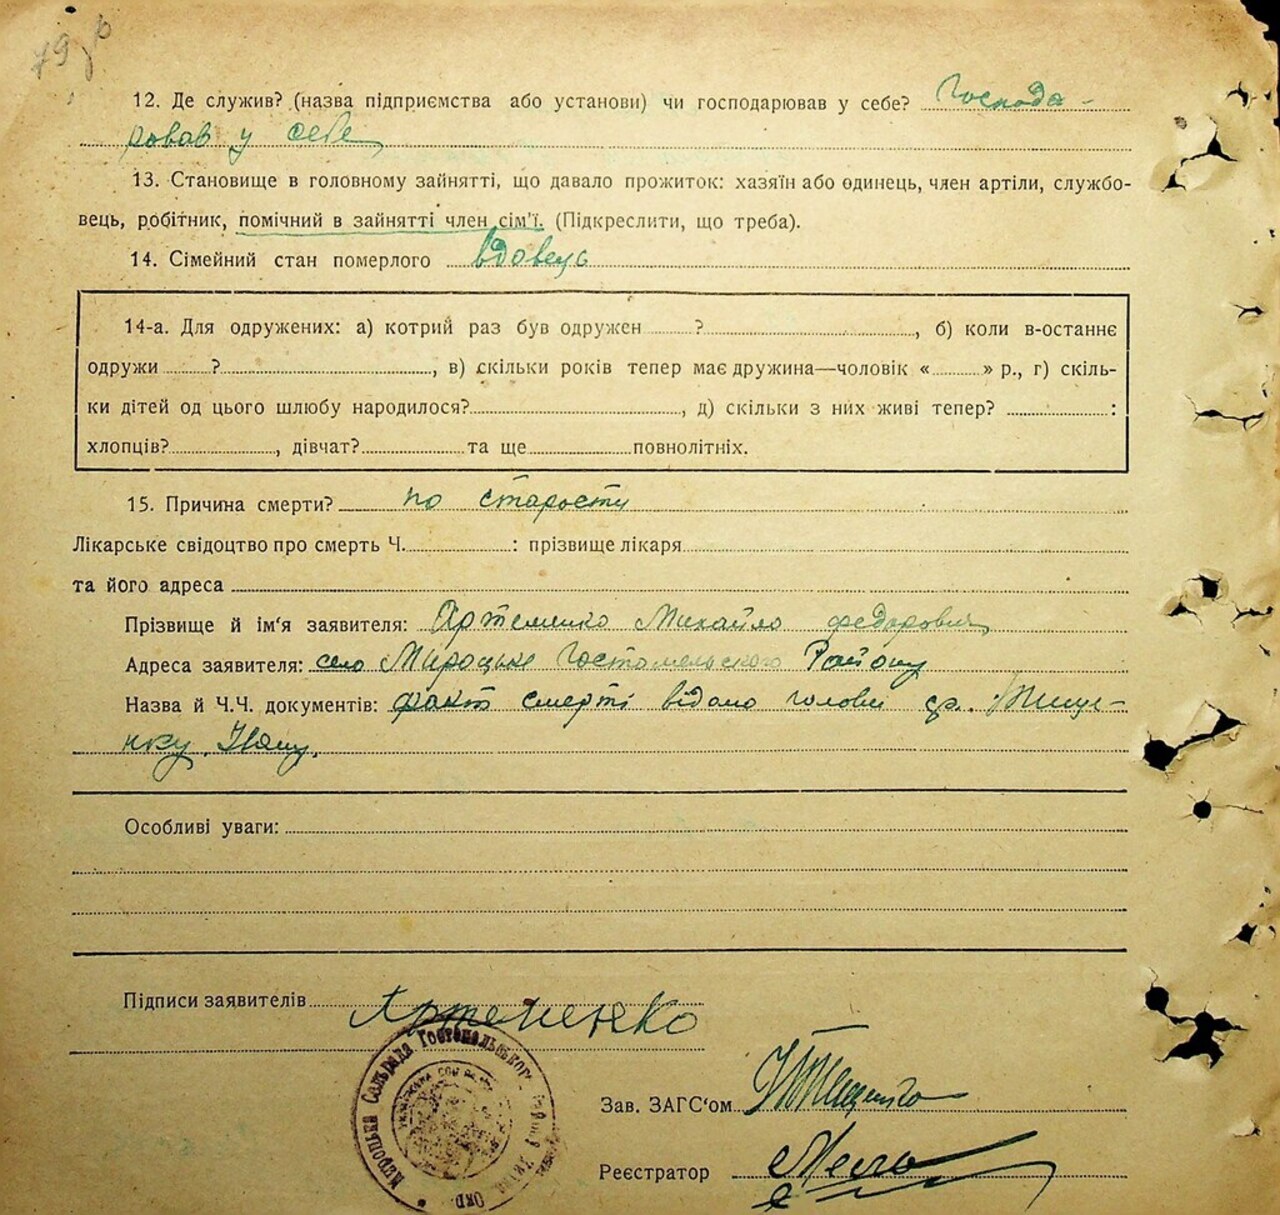 79
12. Де служив? (назва підприємства або установи) чи господарював у себе? Господа-
ровав у себе
13. Становище в головному зайнятті, що давало прожиток: хазяїн або одинець, член артіли, службо-
вець, робітник, помічний в зайнятті член сім'ї. (Підкреслити, що треба).
14. Сімейний стан померлого вдовець
14-а. Для одружених: а) котрий раз був одружен ? , б) коли в-останнє
одружи ? , в) скільки років тепер має дружина—чоловік « » р., г) скіль-
ки дітей од цього шлюбу народилося? , д) скільки з них живі тепер? :
хлопців? , дівчат? та ще повнолітніх.
15. Причина смерти? по старости
Лікарське свідоцтво про смерть Ч. : прізвище лікаря
та його адреса
Прізвище й ім'я заявителя: Артеменко Михайло федорович
Адреса заявителя: село Мироцьке Гостомельского Району
Назва й Ч.Ч. документів: факт смерті відомо голови
Івану.
Особливі уваги:
Підписи заявителів Артеменко
Сельрада Гостомельського
Зав. ЗАГС'ом
Реєстратор